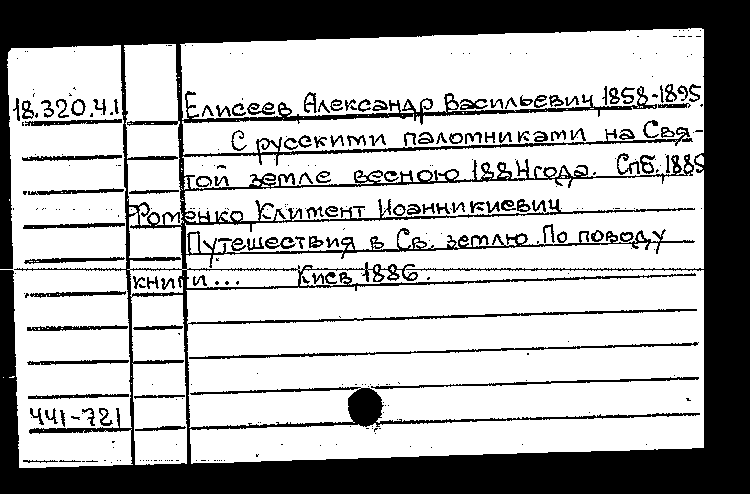 18.320.4.1. Елисеев, Александр Васильевич, 1858-1895.
С русскими паломниками на Свя-
той земле весною 1884 года. Спб., 1885
Фоменко, Климент Иоанникиевич
Путешествия в Св. землю. По поводу
книги... Киев, 1886.
441-721